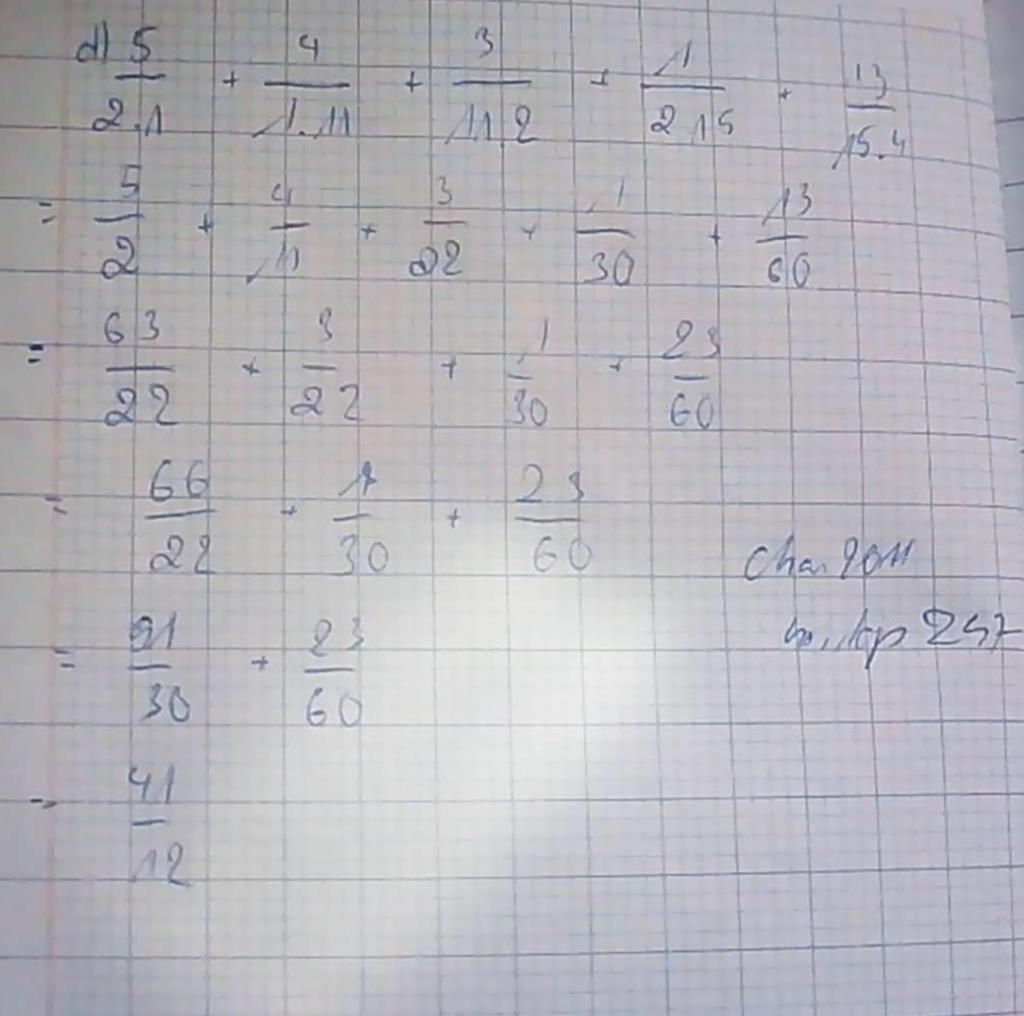 d) 5/2.1 + 4/1.11 + 3/11.2 + 1/2.15 + 13/15.4
= 5/2 + 4/11 + 3/22 + 1/30 + 13/60
= 63/22 + 3/22 + 1/30 + 23/60
= 66/22 + 1/30 + 23/60
= 91/30 + 23/60
= 41/12